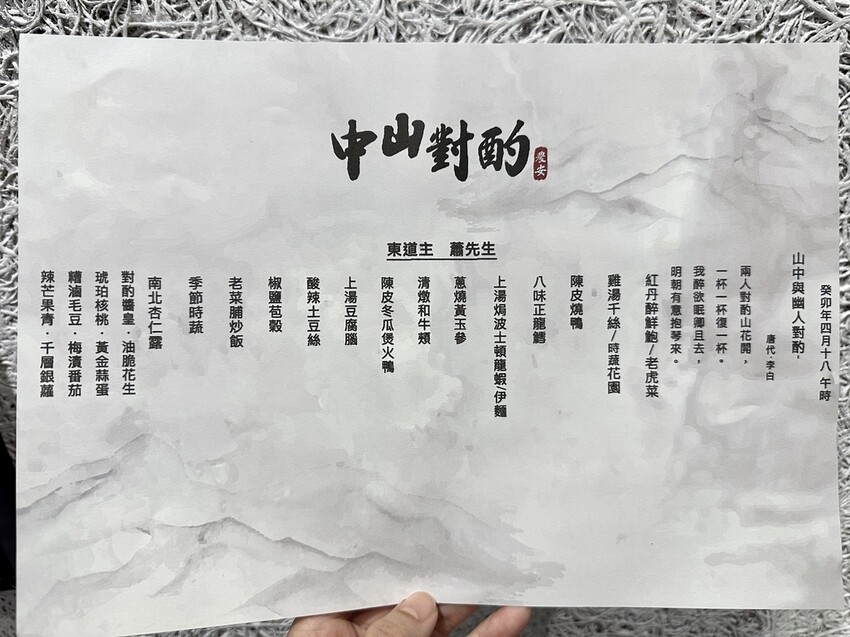 中山對酌
慶安
東道主　蕭先生
癸卯年四月十八 午時
山中與幽人對酌．
唐代．李白
兩人對酌山花開，
一杯一杯復一杯。
我醉欲眠卿且去，
明朝有意抱琴來。
紅丹醉鮮鮑/老虎菜
雞湯干絲/時蔬花園
陳皮燒鴨
八味正龍鱈
上湯焗波士頓龍蝦/伊麵
蔥燒黃玉參
清燉和牛頰
陳皮冬瓜煲火鴨
上湯豆腐腦
酸辣土豆絲
椒鹽苞穀
老菜脯炒飯
季節時蔬
南北杏仁露
對酌醬皇．油脆花生
琥珀核桃．黃金蒜蛋
糟滷毛豆．梅漬番茄
辣芒果青．千層銀蘿